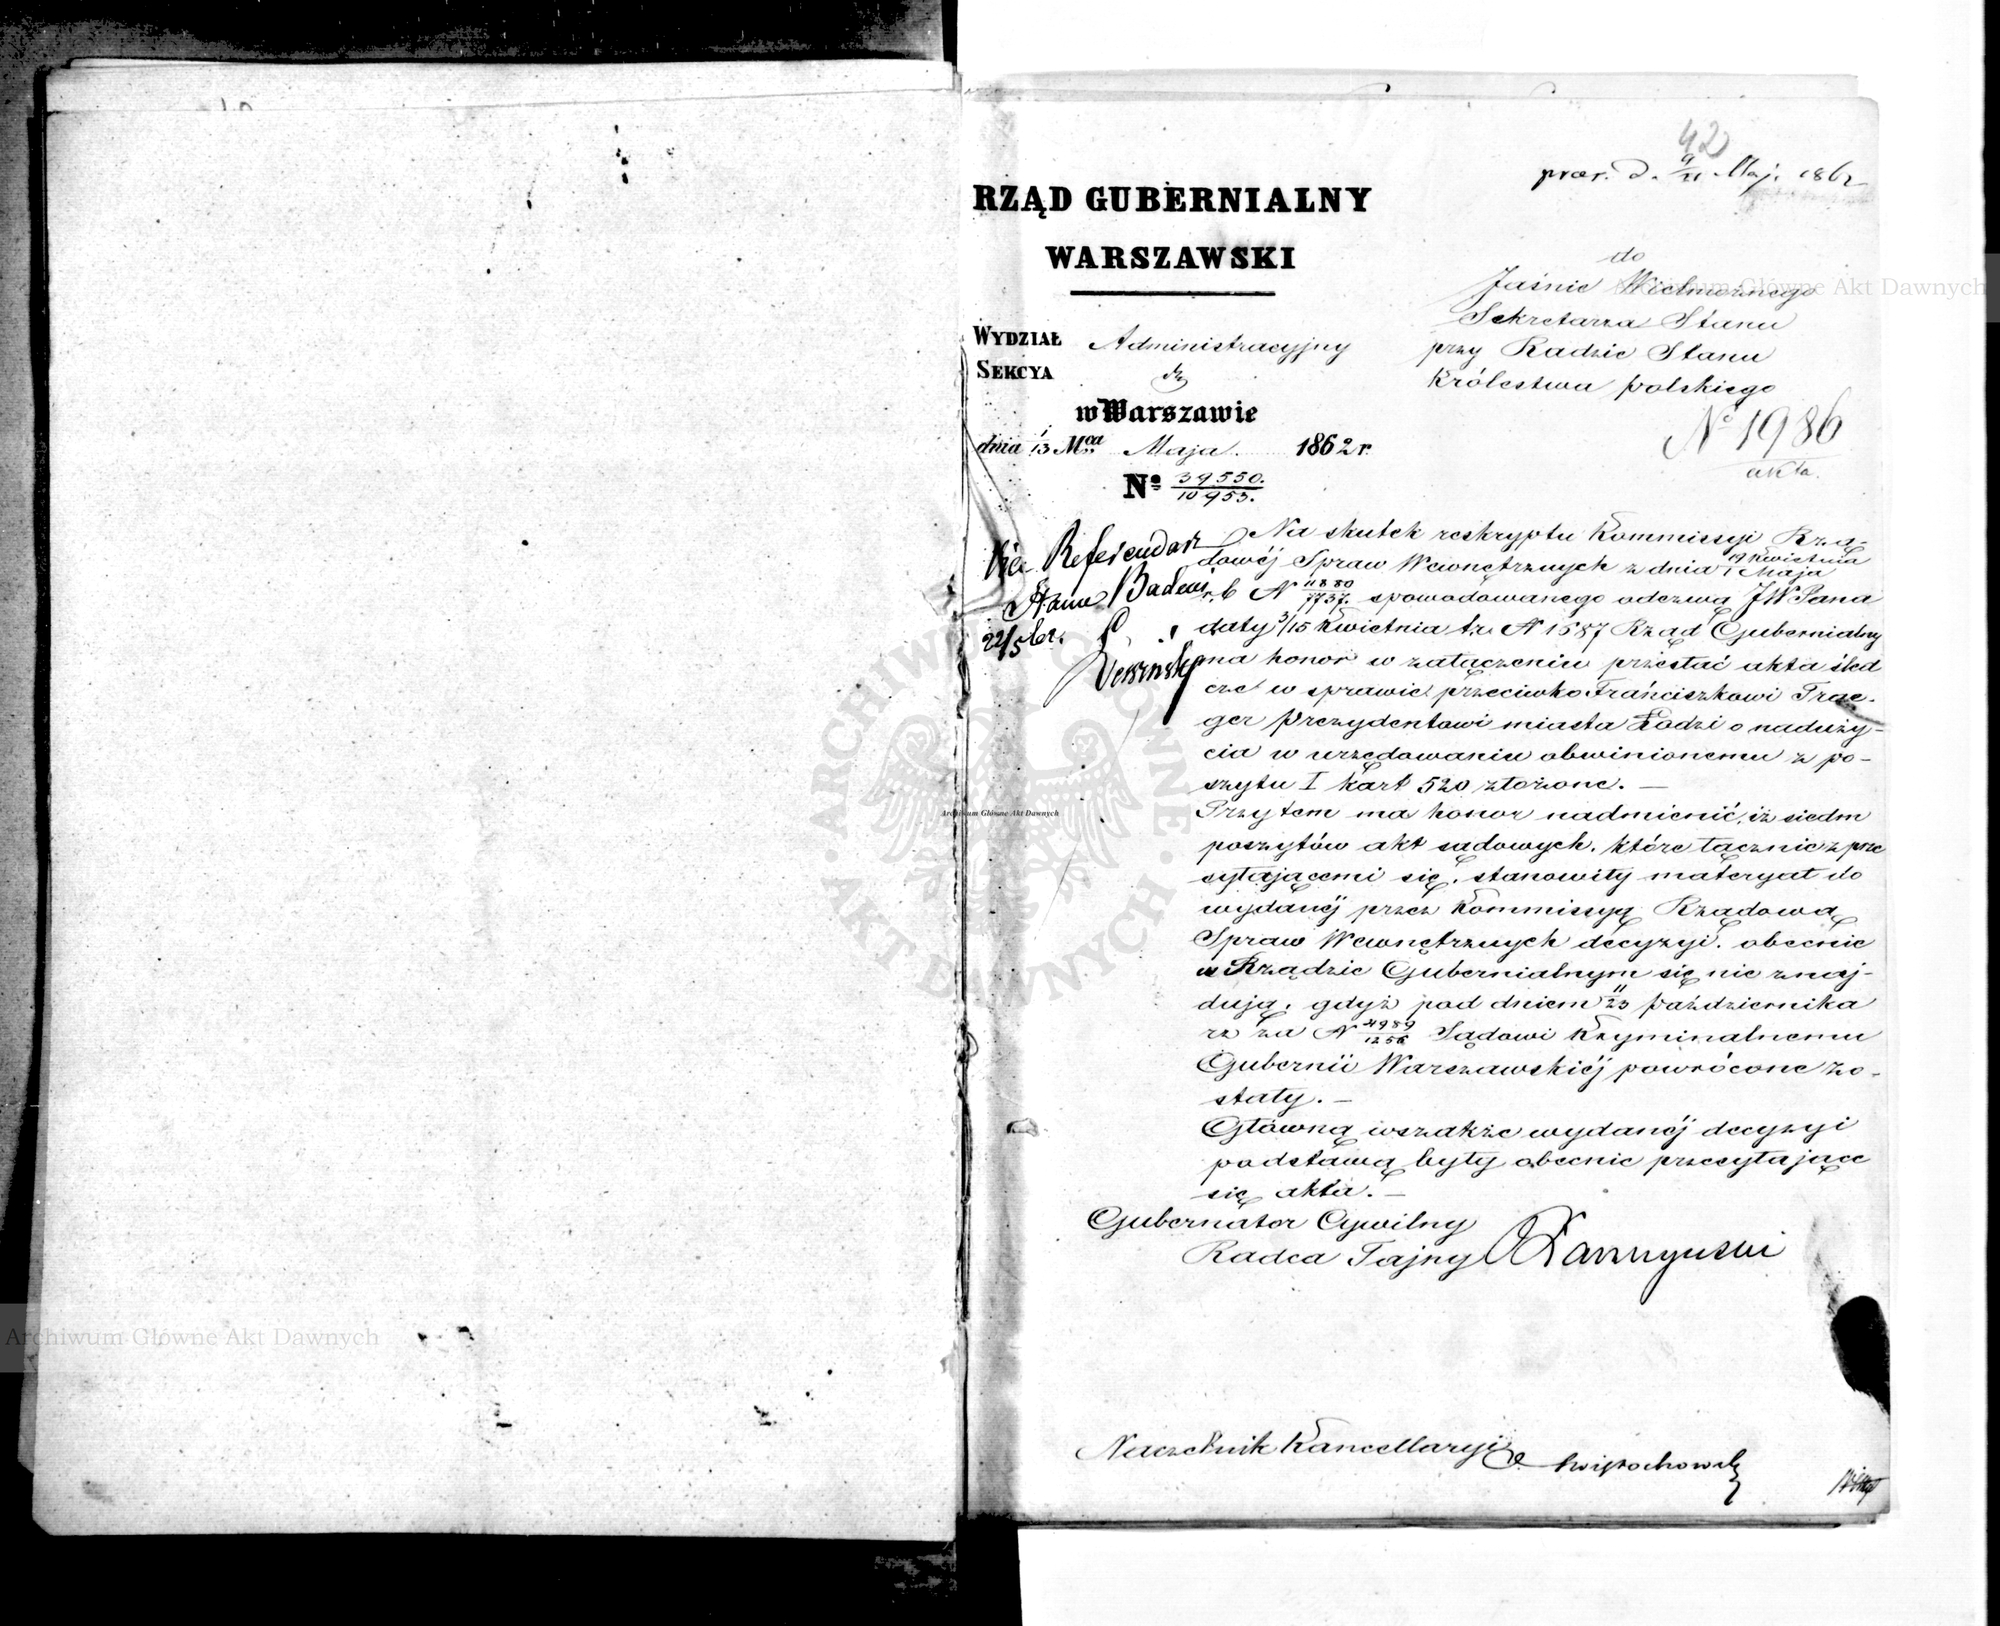 42
præs. d. 9/21 Maj. 1862
RZĄD GUBERNIALNY
WARSZAWSKI
do
Jaśnie Wielmożnego
Sekretarza Stanu
przy Radzie Stanu
Królestwa Polskiego
WYDZIAŁ Administracyjny
SEKCYA
w Warszawie
dnia 1/13 Mca Maja 1862 r.
No 39550./10953.
No 1986
akta.
Vice Referendarz
Stanu
22/5
Na skutek reskryptu Kommissyi Rzą-
dowéj Spraw Wewnętrznych z dnia 19 Kwietnia/1 Maja
r. b N 11880/7737. spowodowanego odezwą JW Pana
daty 3/15 Kwietnia t.r. N 1687 Rząd Gubernialny
ma honor w załączeniu przesłać akta śled
cze w sprawie przeciwko Franciszkowi Trae-
ger Prezydentowi miasta Łodzi o naduży-
cia w urzędowaniu obwinionemu z po-
szytu I kart 520 złożone. —
Przytem ma honor nadmienić, iż siedm
poszytów akt sądowych, które łącznie z prze
syłającemi się, stanowiły materyał do
wydanéj przez Kommissyą Rządową
Spraw Wewnętrznych decyzyi, obecnie
w Rządzie Gubernialnym się nie znaj-
dują, gdyż pod dniem 11/23 Października
rz za N 4989/1256 Sądowi Kryminalnemu
Gubernii Warszawskiéj powrócone zo-
stały. —
Główną wszakże wydanéj decyzyi
podstawą były obecnie przesyłające
się akta. —
Gubernator Cywilny
Radca Tajny Łaszczyński
Naczelnik Kancellaryi
Świętochowski
Archiwum Główne Akt Dawnych
Archiwum Główne Akt Dawnych
Archiwum Główne Akt Dawnych
ARCHIWUM GŁÓWNE · AKT DAWNYCH ·